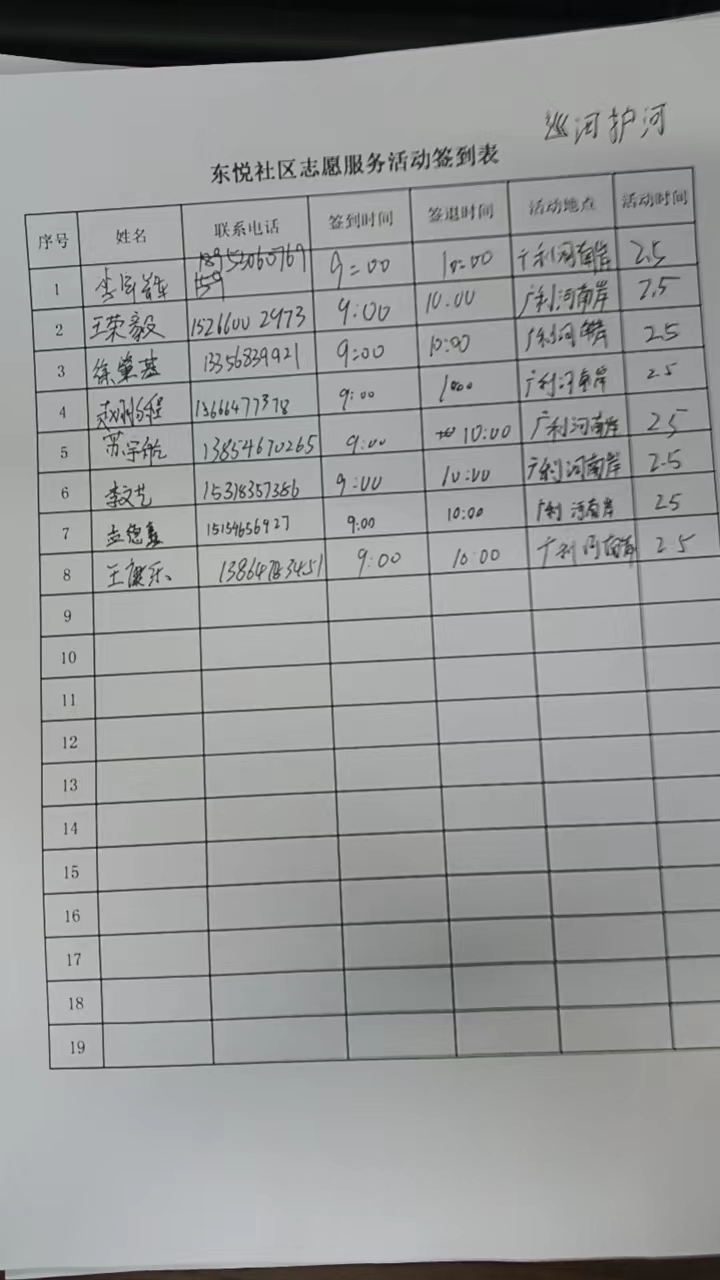 巡河护河
东悦社区志愿服务活动签到表
序号 姓名 联系电话 签到时间 签退时间 活动地点 活动时间
1 9:00 10:00 广利河南岸 2.5
2 王荣毅 15266002973 9:00 10.00 广利河南岸 2.5
3 徐肇基 13356839921 9:00 10:00 广利河南岸 2.5
4 13666477378 9:00 广利河南岸 2.5
5 苏宇皓 13854670265 9:00 10:00 广利河南岸 2.5
6 李文艺 15318357386 9:00 10:00 广利河南岸 2.5
7 15154656927 9:00 10:00 广利河南岸 25
8 王康乐 9:00 10:00 广利河南岸 2.5
9
10
11
12
13
14
15
16
17
18
19